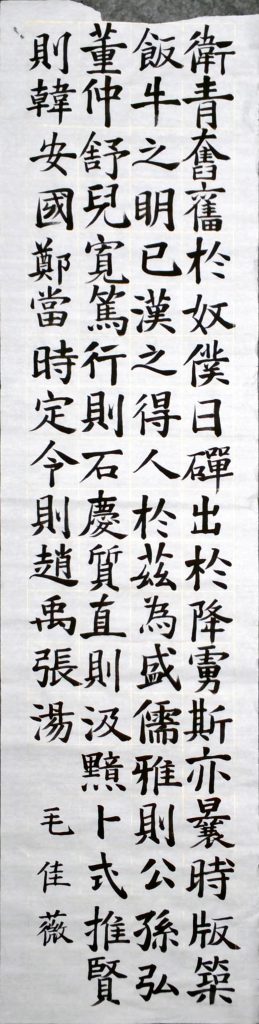 衛青奮舊於奴僕日磾出於降虜斯亦曩時版築
飯牛之明已漢之得人於茲為盛儒雅則公孫弘
董仲舒兒寬篤行則石慶質直則汲黯卜式推賢
則韓安國鄭當時定令則趙禹張湯
毛佳薇